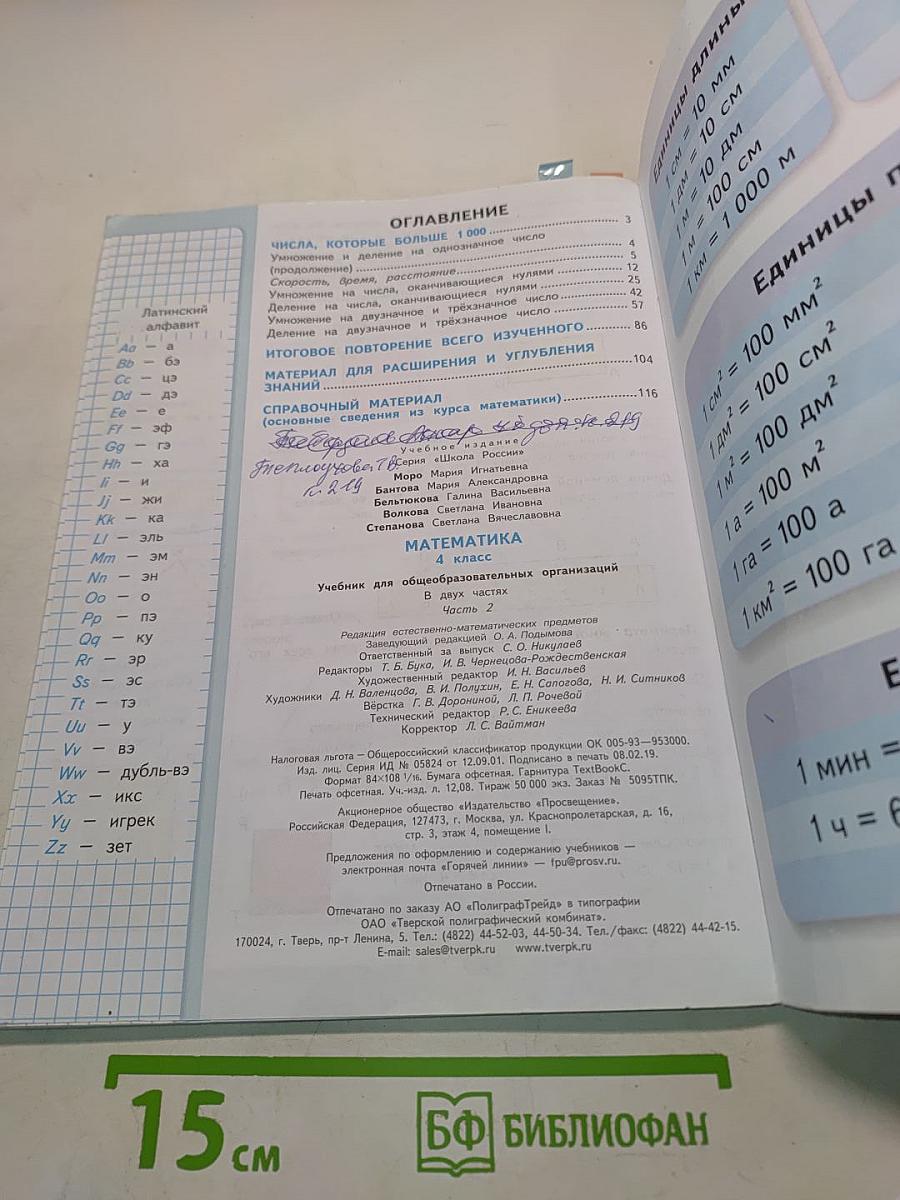 Латинский
алфавит
Aa – а
Bb – бэ
Cc – цэ
Dd – дэ
Ee – е
Ff – эф
Gg – гэ
Hh – ха
Ii – и
Jj – жи
Kk – ка
Ll – эль
Mm – эм
Nn – эн
Oo – о
Pp – пэ
Qq – ку
Rr – эр
Ss – эс
Tt – тэ
Uu – у
Vv – вэ
Ww – дубль-вэ
Xx – икс
Yy – игрек
Zz – зет
ОГЛАВЛЕНИЕ
ЧИСЛА, КОТОРЫЕ БОЛЬШЕ 1 000 ... 3
Умножение и деление на однозначное число
(продолжение) ... 4
Скорость, время, расстояние ... 5
Умножение на числа, оканчивающиеся нулями ... 12
Деление на числа, оканчивающиеся нулями ... 25
Умножение на двузначное и трёхзначное число ... 42
Деление на двузначное и трёхзначное число ... 57
ИТОГОВОЕ ПОВТОРЕНИЕ ВСЕГО ИЗУЧЕННОГО ... 86
МАТЕРИАЛ ДЛЯ РАСШИРЕНИЯ И УГЛУБЛЕНИЯ
ЗНАНИЙ ... 104
СПРАВОЧНЫЙ МАТЕРИАЛ
(основные сведения из курса математики) ... 116
Учебное издание
Серия «Школа России»
Моро Мария Игнатьевна
Бантова Мария Александровна
Бельтюкова Галина Васильевна
Волкова Светлана Ивановна
Степанова Светлана Вячеславовна
МАТЕМАТИКА
4 класс
Учебник для общеобразовательных организаций
В двух частях
Часть 2
Редакция естественно-математических предметов
Заведующий редакцией О. А. Подымова
Ответственный за выпуск С. О. Никулаев
Редакторы Т. Б. Бука, И. В. Чернецова-Рождественская
Художественный редактор И. Н. Васильев
Художники Д. Н. Валенцова, В. И. Полухин, Е. Н. Сапогова, Н. И. Ситников
Вёрстка Г. В. Дорониной, Л. П. Рочевой
Технический редактор Р. С. Еникеева
Корректор Л. С. Вайтман
Налоговая льгота – Общероссийский классификатор продукции ОК 005-93–953000.
Изд. лиц. Серия ИД № 05824 от 12.09.01. Подписано в печать 08.02.19.
Формат 84×108 1/16. Бумага офсетная. Гарнитура TextBookC.
Печать офсетная. Уч.-изд. л. 12,08. Тираж 50 000 экз. Заказ № 5095ТПК.
Акционерное общество «Издательство «Просвещение».
Российская Федерация, 127473, г. Москва, ул. Краснопролетарская, д. 16,
стр. 3, этаж 4, помещение I.
Предложения по оформлению и содержанию учебников –
электронная почта «Горячей линии» – fpu@prosv.ru.
Отпечатано в России.
Отпечатано по заказу АО «ПолиграфТрейд» в типографии
ОАО «Тверской полиграфический комбинат».
170024, г. Тверь, пр-т Ленина, 5. Тел.: (4822) 44-52-03, 44-50-34. Тел./факс: (4822) 44-42-15.
E-mail: sales@tverpk.ru www.tverpk.ru
Единицы длины
1 см = 10 мм
1 дм = 10 см
1 м = 10 дм
1 м = 100 см
1 км = 1 000 м
Единицы п
1 см² = 100 мм²
1 дм² = 100 см²
1 м² = 100 дм²
1 а = 100 м²
1 га = 100 а
1 км² = 100 га
Е
1 мин =
1 ч = 6
15 см
БФ БИБЛИОФАН